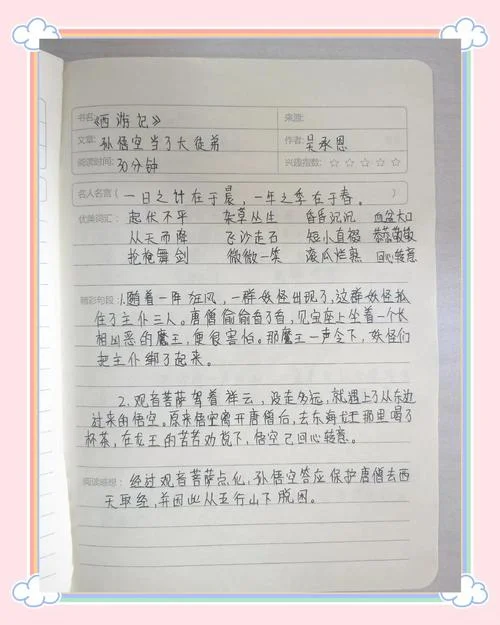 书名: 《西游记》 来源:
文章: 孙悟空当了大徒弟 作者: 吴承恩
阅读时间: 30分钟 兴趣指数: ☆ ☆ ☆ ☆ ☆
名人名言( 一日之计在于晨，一年之季在于春。 )
优美词汇: 起伏不平 杂草丛生 昏昏沉沉 血盆大口
从天而降 飞沙走石 短小直裰 恭恭敬敬
抡枪舞剑 微微一笑 滚瓜烂熟 回心转意
精彩句段: 1.随着一阵狂风，一群妖怪出现了，这群妖怪抓
住了主仆三人。唐僧偷偷看了看，见宝座上坐着一个长
相凶恶的魔王，便很害怕。那魔王一声令下，妖怪们
把主仆绑了起来。
2.观音菩萨驾着祥云，没走多远，就遇上了从东边
过来的悟空。原来悟空离开唐僧后，去东海龙王那里喝了
杯茶，在龙王的苦苦劝说下，悟空已回心转意。
阅读感想: 经过观音菩萨点化，孙悟空答应保护唐僧去西
天取经，并因此从五行山下脱困。